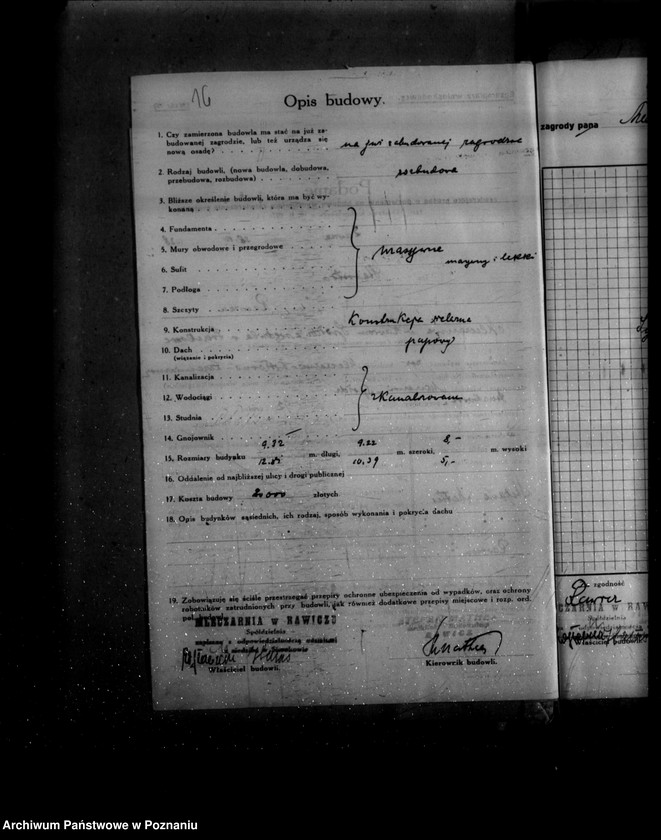 16
Opis budowy.
1. Czy zamierzona budowla ma stać na już za-
budowanej zagrodzie, lub też urządza się
nową osadę?
na już zabudowanej zagrodzie
2. Rodzaj budowli, (nowa budowla, dobudowa,
przebudowa, rozbudowa)
3. Bliższe określenie budowli, która ma być wy-
konaną
4. Fundamenta
5. Mury obwodowe i przegrodowe
masywne
6. Sufit
7. Podłoga
8. Szczyty
9. Konstrukcja
Konstrukcja żelazna
10. Dach
(wiązanie i pokrycia)
papowy
11. Kanalizacja
12. Wodociągi
skanalizowane
13. Studnia
14. Gnojownik
9.82 9.22 8 –
15. Rozmiary budynku m. długi, m. szeroki, m. wysoki
10.39 5,–
16. Oddalenie od najbliższej ulicy i drogi publicznej
17. Koszta budowy 20000 złotych
18. Opis budynków sąsiednich, ich rodzaj, sposób wykonania i pokrycia dachu
19. Zobowiązuję się ściśle przestrzegać przepisy ochronne ubezpieczenia od wypadków, oraz ochrony
robotników zatrudnionych przy budowli, jak również dodatkowe przepisy miejscowe i rozp. ord.
MLECZARNIA w RAWICZU
Spółdzielnia
Właściciel budowli.
Kierownik budowli.
zagrody pana
zgodność
CZARNIA w RAW
Spółdzielnia
Właściciel budowli
Archiwum Państwowe w Poznaniu